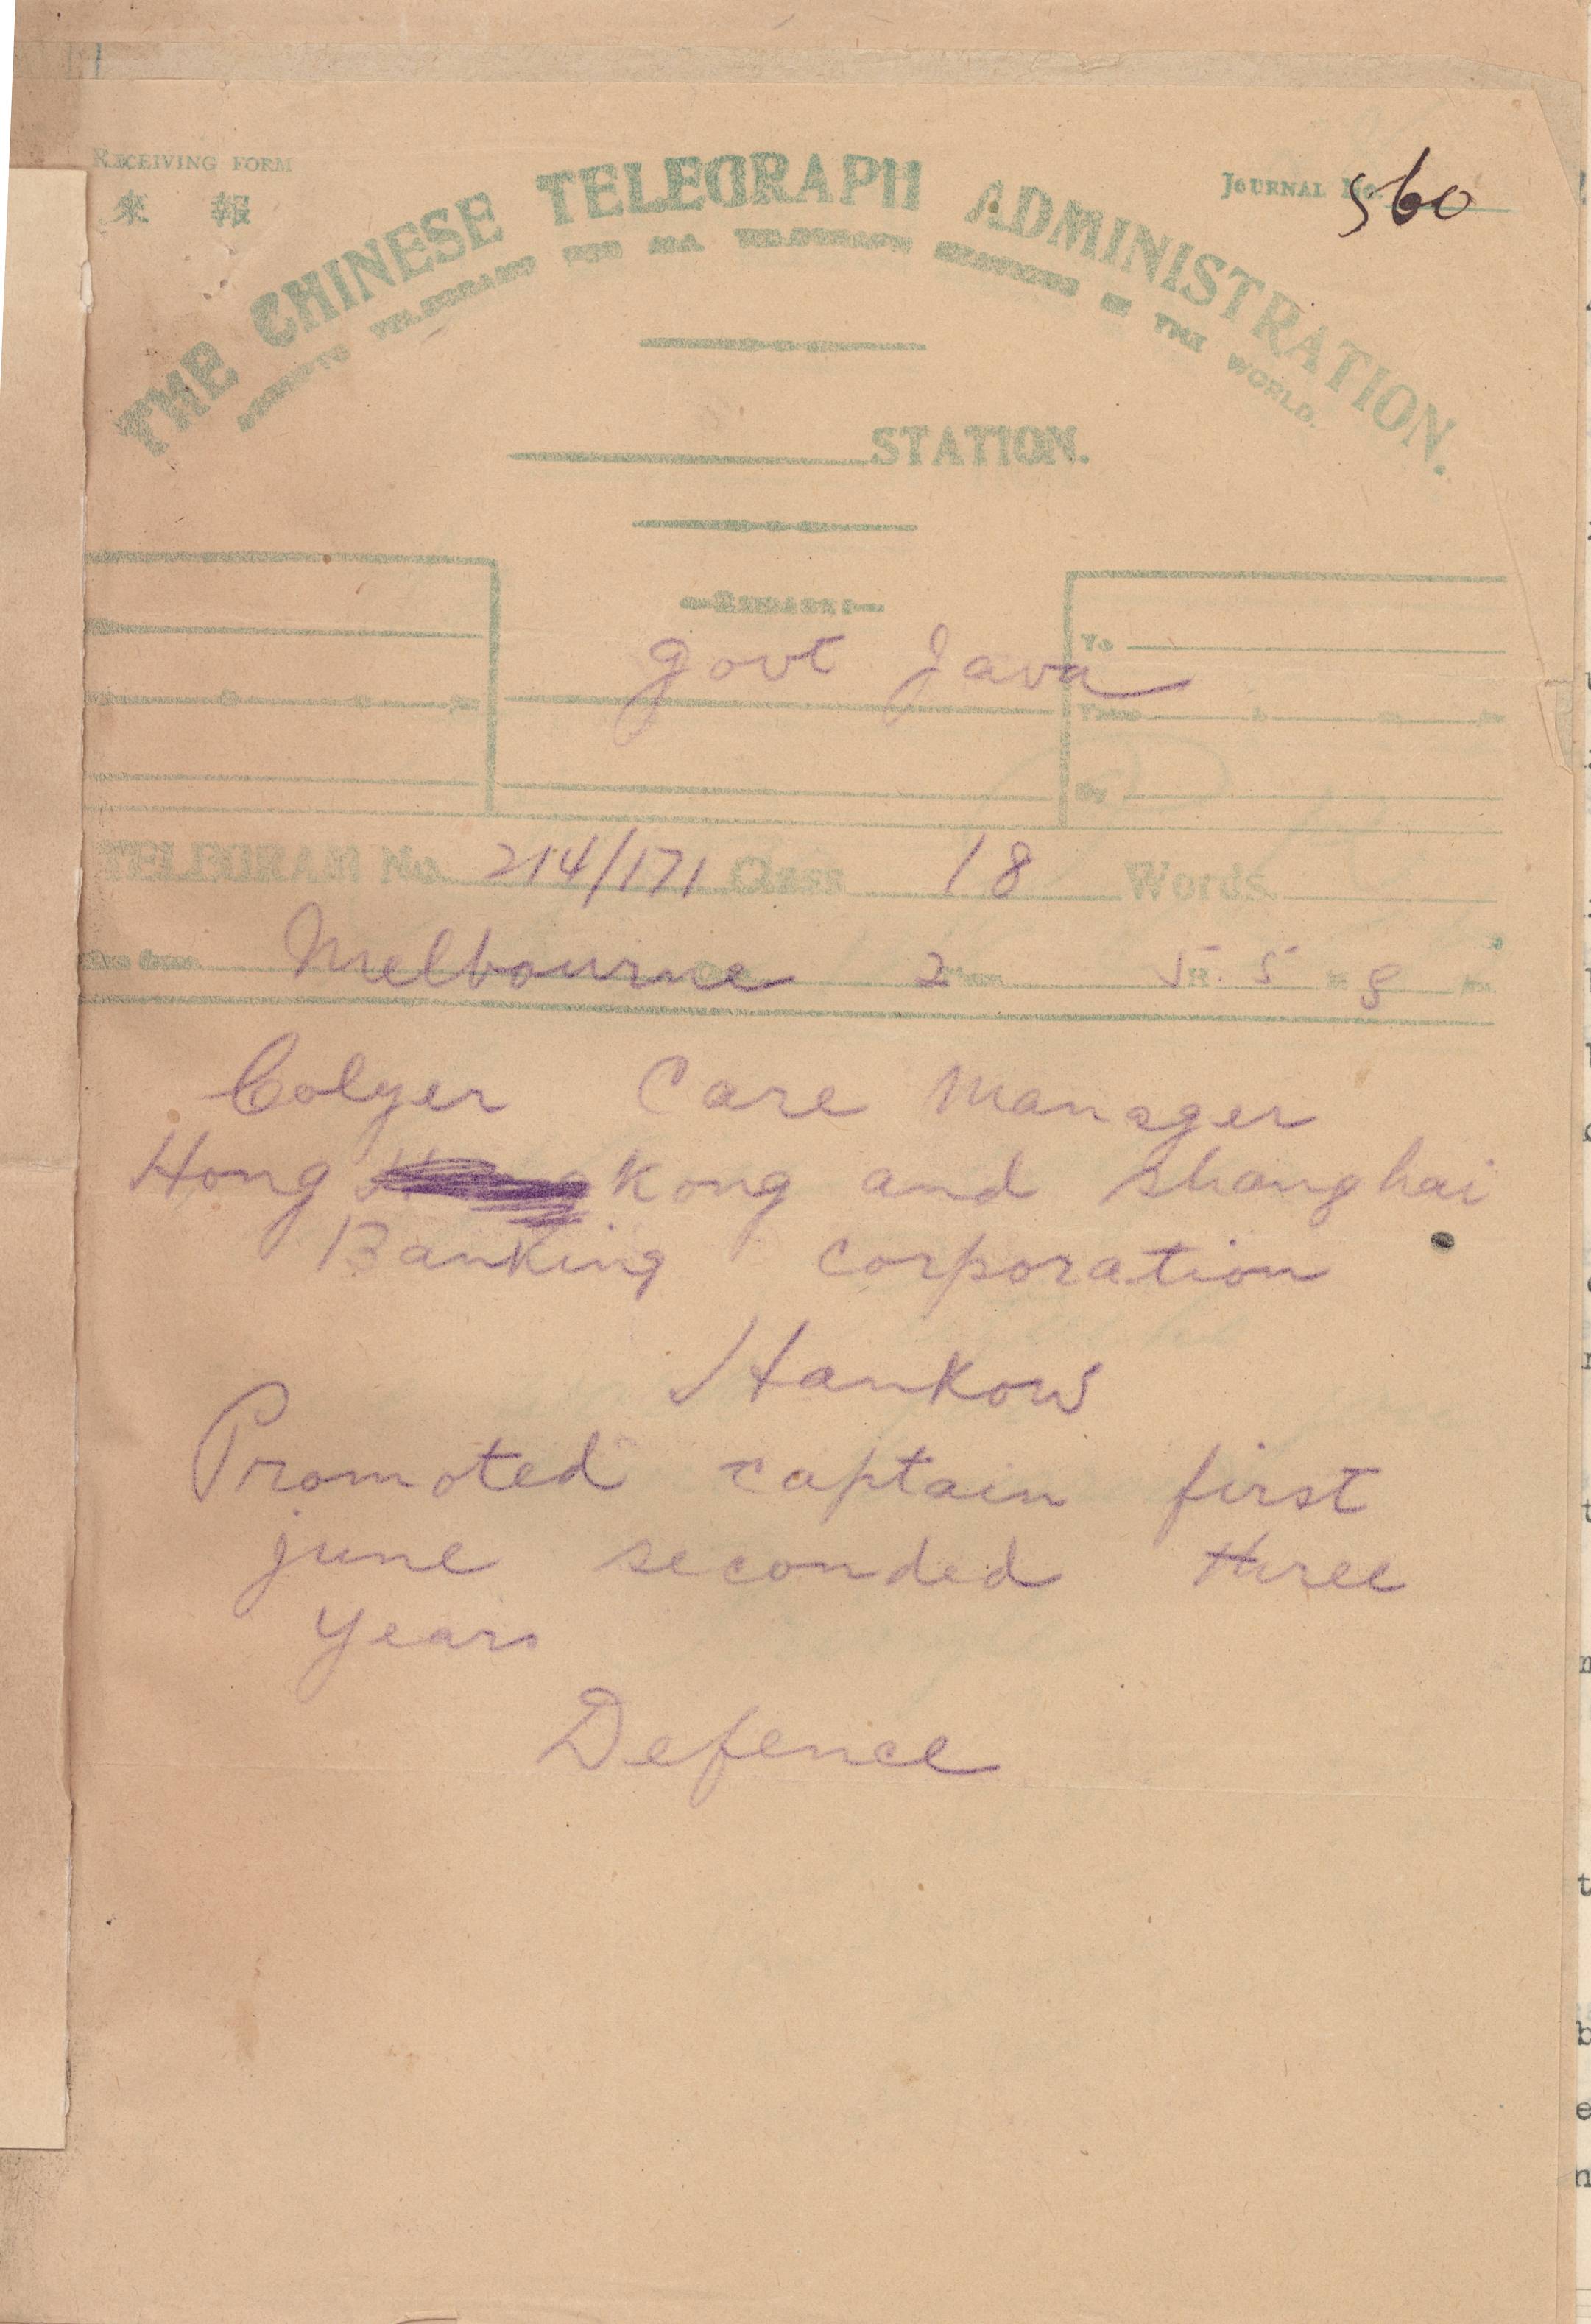 RECEIVING FORM
來 報
JOURNAL No. 560
THE CHINESE TELEGRAPH ADMINISTRATION.
TELEGRAPH STATIONS IN THE WORLD.
STATION.
REMARKS
Govt Java
To
By
TELEGRAM No. 214/171 Class 18 Words
Melbourne 2 5 5 8
Colyer Care Manager
Hong Kong and Shanghai
Banking Corporation
Hankow
Promoted captain first
june seconded three
years
Defence